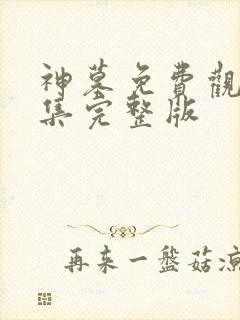 神墓免費觀
集完整版
再来一盤菇凉